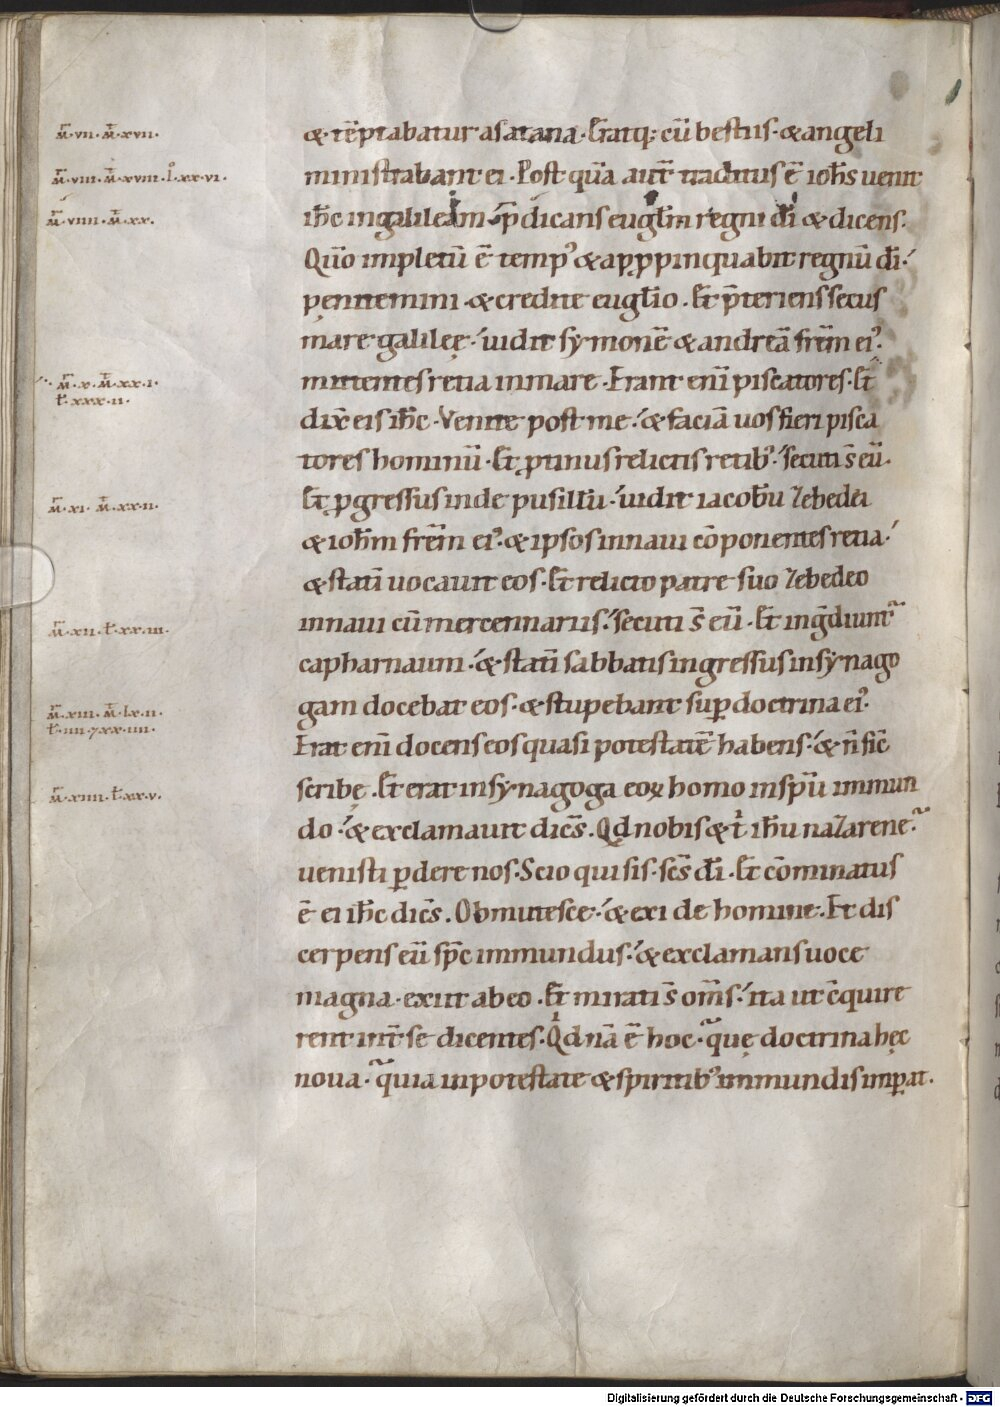 ·mͬ·vii· mͭ·xvii·
& tēptabatur a satana· Eratq; cū bestiis· & angeli
mͬ·viii· mͭ·xviii· io·xx·vi·
ministrabant ei· Post quā autē traditus ē ioħs uenit
mͬ·viiii· mͭ·xx·
iħc in galileam p̄dicans eugłm regni dī & dicens·
Qūo impletū ē temp᾽ & apꝓpinquabit regnū dī·
pęnitemini· & credite eugłio· Et p̄teriens secus
mare galileę· uidit symonē & andreā frēm ei᾽·
mͬ·x· mͭ·xx·i·
ł·xxx·ii·
mittentes retia in mare· Erant enī piscatores· Et
dix̄ eis iħc· Venite post me· & faciā uos fieri pisca
tores hominū· Et ꝓtinus relictis retib᾽· secuti s̄ eū·
mͬ·xi· mͭ·xx·ii·
Et ꝓgressus inde pusillū· uidit iacobū zebedei
& ioħm frēm ei᾽· & ipsos in naui cōponentes retia·
& statī uocauit eos· Et relicto patre suo zebedeo
mͬ·xii· ł·xx·iii·
in naui cū mercennariis· secuti s̄ eū· Et ingͣdiunt᷑
capharnaum· & statī sabbatis ingressus in synago
mͬ·xiii· mͭ·lx·ii·
ł·iiii·⁊xx·iiii·
gam docebat eos· & stupebant suꝑ doctrina ei᾽·
Erat enī docens eos quasi potestatē habens· & n̄ sic̄
mͬ·xiiii· ł·xx·v·
scribę· Et erat in synagoga eoꝝ homo in spū immun
do· & exclamauit dicēs· Qd nobis & t̍ iħu nazarene·
uenisti ꝑdere nos· Scio qui sis· sc̄s dī· Et cōminatus
ē ei iħc dicēs· Obmutesce· & exi de homine· Et dis
cerpens eū spc̄ immundus· & exclamans uoce
magna· exiit ab eo· Et mirati s̄ om̄s· ita ut c̄quire
rent int̄ se dicentes· Qdnā ē hoc· quę doctrina hęc
noua· quia in potestate & spiritib᾽ immundis imꝑat·
Digitalisierung gefördert durch die Deutsche Forschungsgemeinschaft - DFG